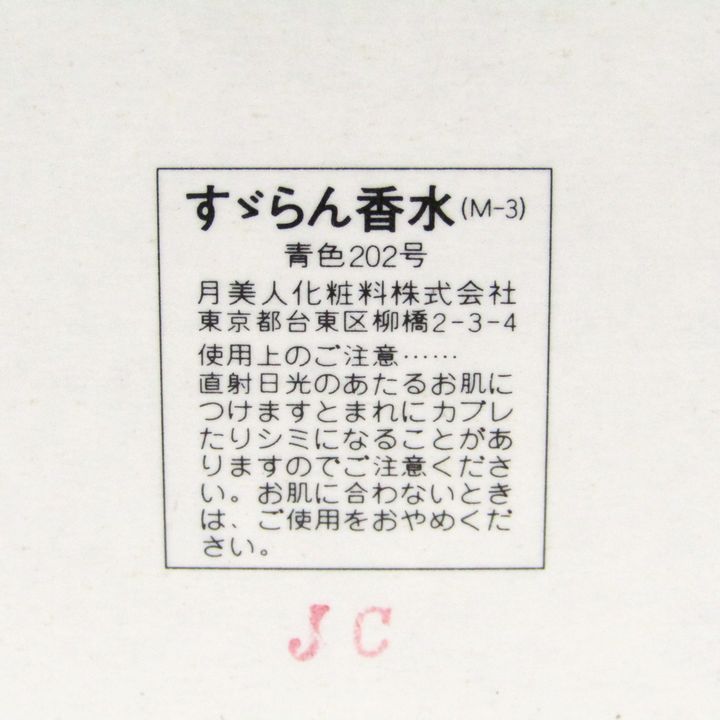 すゞらん香水(M-3)
青色202号
月美人化粧料株式会社
東京都台東区柳橋2-3-4
使用上のご注意……
直射日光のあたるお肌に
つけますとまれにカブレ
たりシミになることがあ
りますのでご注意くださ
い。お肌に合わないとき
は、ご使用をおやめくだ
さい。
JC